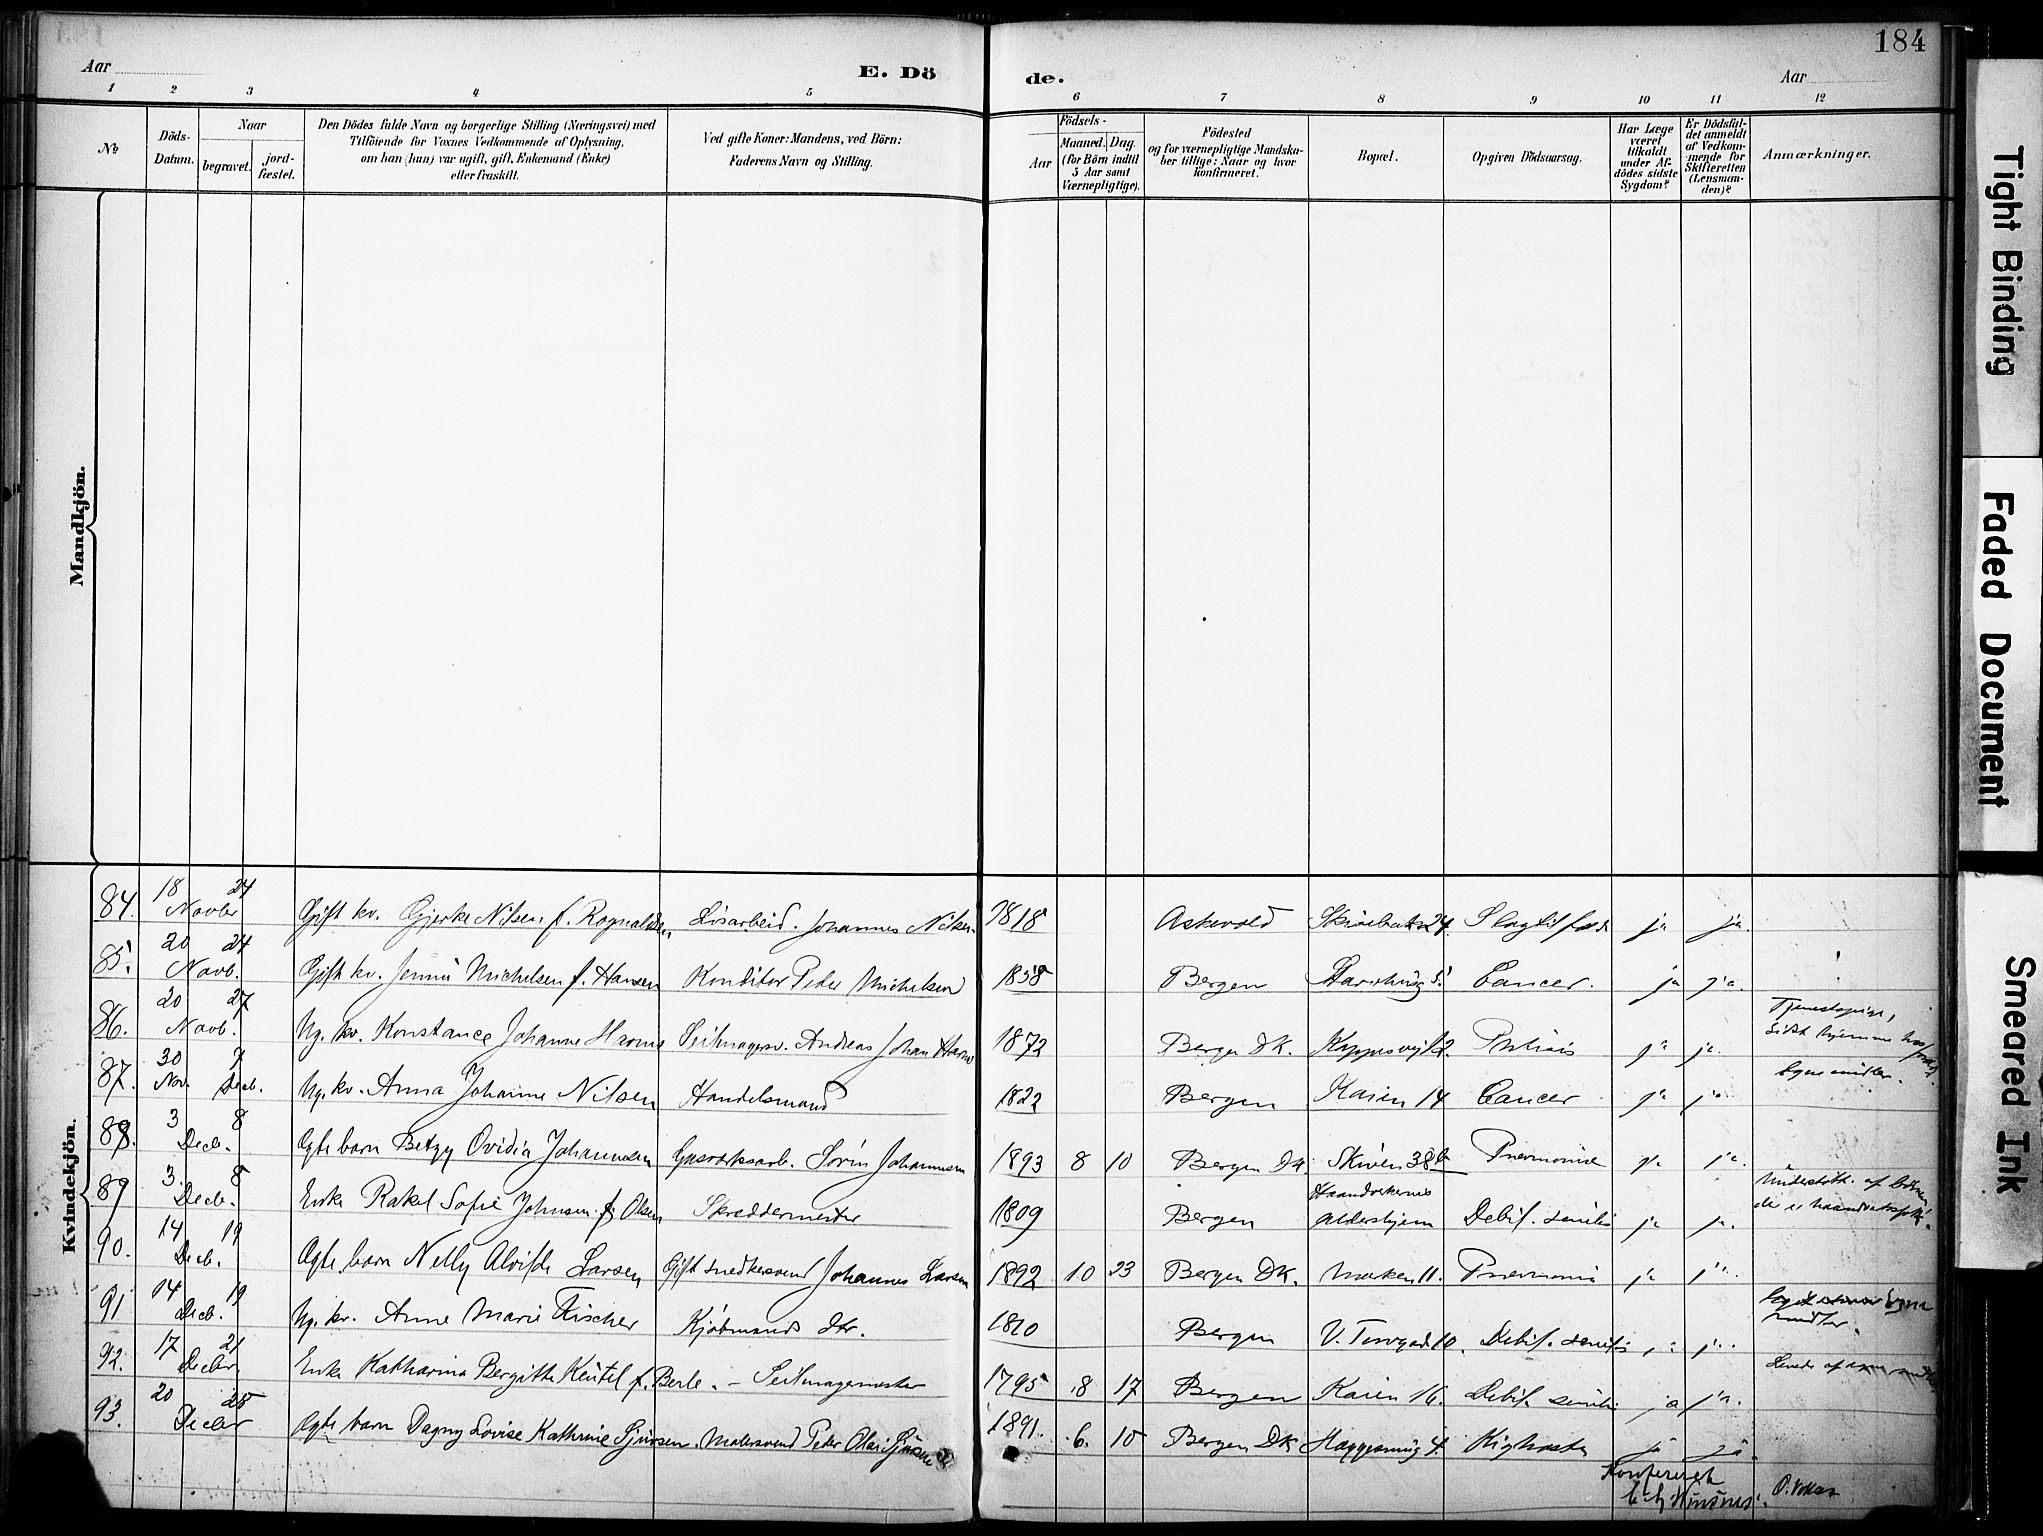 184
Aar
E. Dö
de.
Aar
1 2 3 4 5 6 7 8 9 10 11 12
No
Döds-Datum.
Naar
begravet.
jord-fæstet.
Den Dödes fulde Navn og borgerlige Stilling (Næringsvei) med
Tilföiende for Voxnes Vedkommende af Oplysning,
om han (hun) var ugift, gift, Enkemand (Enke)
eller fraskilt.
Ved gifte Koner: Mandens, ved Börn:
Faderens Navn og Stilling.
Födsels-
Aar
Maaned. Dag.
(for Börn indtil
5 Aar samt
Værnepligtige).
Födested
og for værnepligtige Mandska-
ber tillige: Naar og hvor
konfirmeret.
Bopæl.
Opgiven Dödsaarsag.
Har Læge
været
tilkaldt
under Af-
dödes sidste
Sygdom?
Er Dödsfal-
det anmeldt
af Vedkom-
mende for
Skifteretten
(Lensman-
den)?
Anmærkninger.
Mandkjön.
Kvindekjön.
84. 18 Novbr 24 Gift kv. Gjerke Nilsen f. Rognaldsen Lösarbeid. Johannes Nilsen 1818 Askevold 24. Slagtilfælde ja ja.
85. 20 Novb. 24 Gift kv. Jennü Michelsen f. Hansen Konditor Peder Michelsen 1858 Bergen 5. Cancer. ja ja.
86. 20 Novb. 27 Ug. kv. Konstance Johanne Harme Andreas Johan Harme 1872 Bergen DK. 12. Phthisis ja ja. Tjenestepige, sidst hjemme hos
87. 30 Nov. 7 Decb. Ug. kv. Anna Johanne Nilsen Handelsmand 1822 Bergen 14 Cancer ja ja egne midler.
88. 3 Decb. 8 Ægte barn Betzy Ovidia Johannesen Gasværksarb. Sörin Johannesen 1893 8 10 Bergen DK Skiven 38b Pneumonie ja ja.
89 3. Decb. 8 Enke Rakel Sofie Johnsen f. Olsen Skræddermester 1809 Bergen Haandverkernes Aldershjem Debil. senilis ja ja. Understött. af
90. 14 Decb. 19 Ægte barn Nelly Alvilde Larsen Gift snedkersvend Johannes Larsen 1892 10 23 Bergen DK. Marken 11. Pneumonia ja ja.
91 14 Decb. 19 Ug. kv. Anne Marie Fischer Kjöbmands dtr. 1810 Bergen V. Torvgad 10. Debil. senilis ja ja. egne midler.
92. 17 Decbr 21 Enke Katharina Bergitte Keütel f. Berle. – Seilmagermester 1795 8 17 Bergen 16. Debil. senilis ja ja. Levede af egne midler
93. 20 Decbr 28 Ægte barn Dagny Lovise Kathrine Sjursen. Malersvend Peder Olai Sjursen 1891. 6. 10 Bergen DK 4. Kighoste ja ja
Konfereret
Tight Binding
Faded Document
Smeared Ink